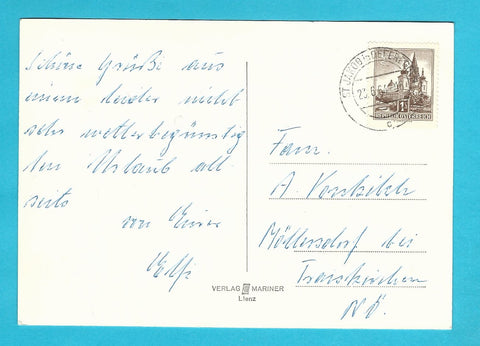 Schöne Grüße aus
einem leider nicht
sehr wetterbegünstig
ten Urlaub all
seits
von Eurer
Elfi
Fam.
A.
Möllersdorf bei
Traiskirchen
NÖ.
VERLAG MARINER
Lienz
ST. JAKOB in DEFER
1
REPUBLIK ÖSTERREICH